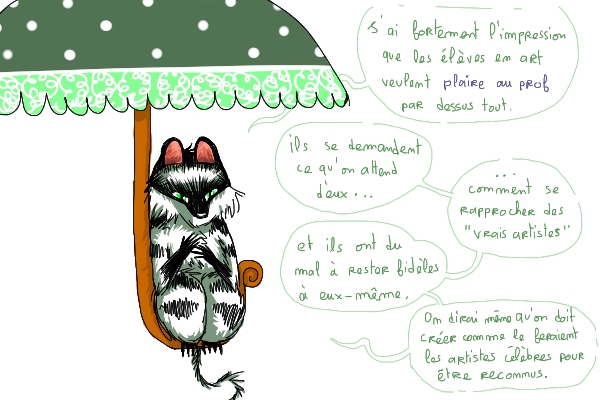 J'ai fortement l'impression
que les élèves en art
veulent plaire au prof
par dessus tout.
ils se demandent
ce qu'on attend
d'eux...
...
comment se
rapprocher des
"vrais artistes"
et ils ont du
mal à rester fidèles
à eux-même.
On dirai même qu'on doit
créer comme le feraient
les artistes célèbres pour
être reconnus.